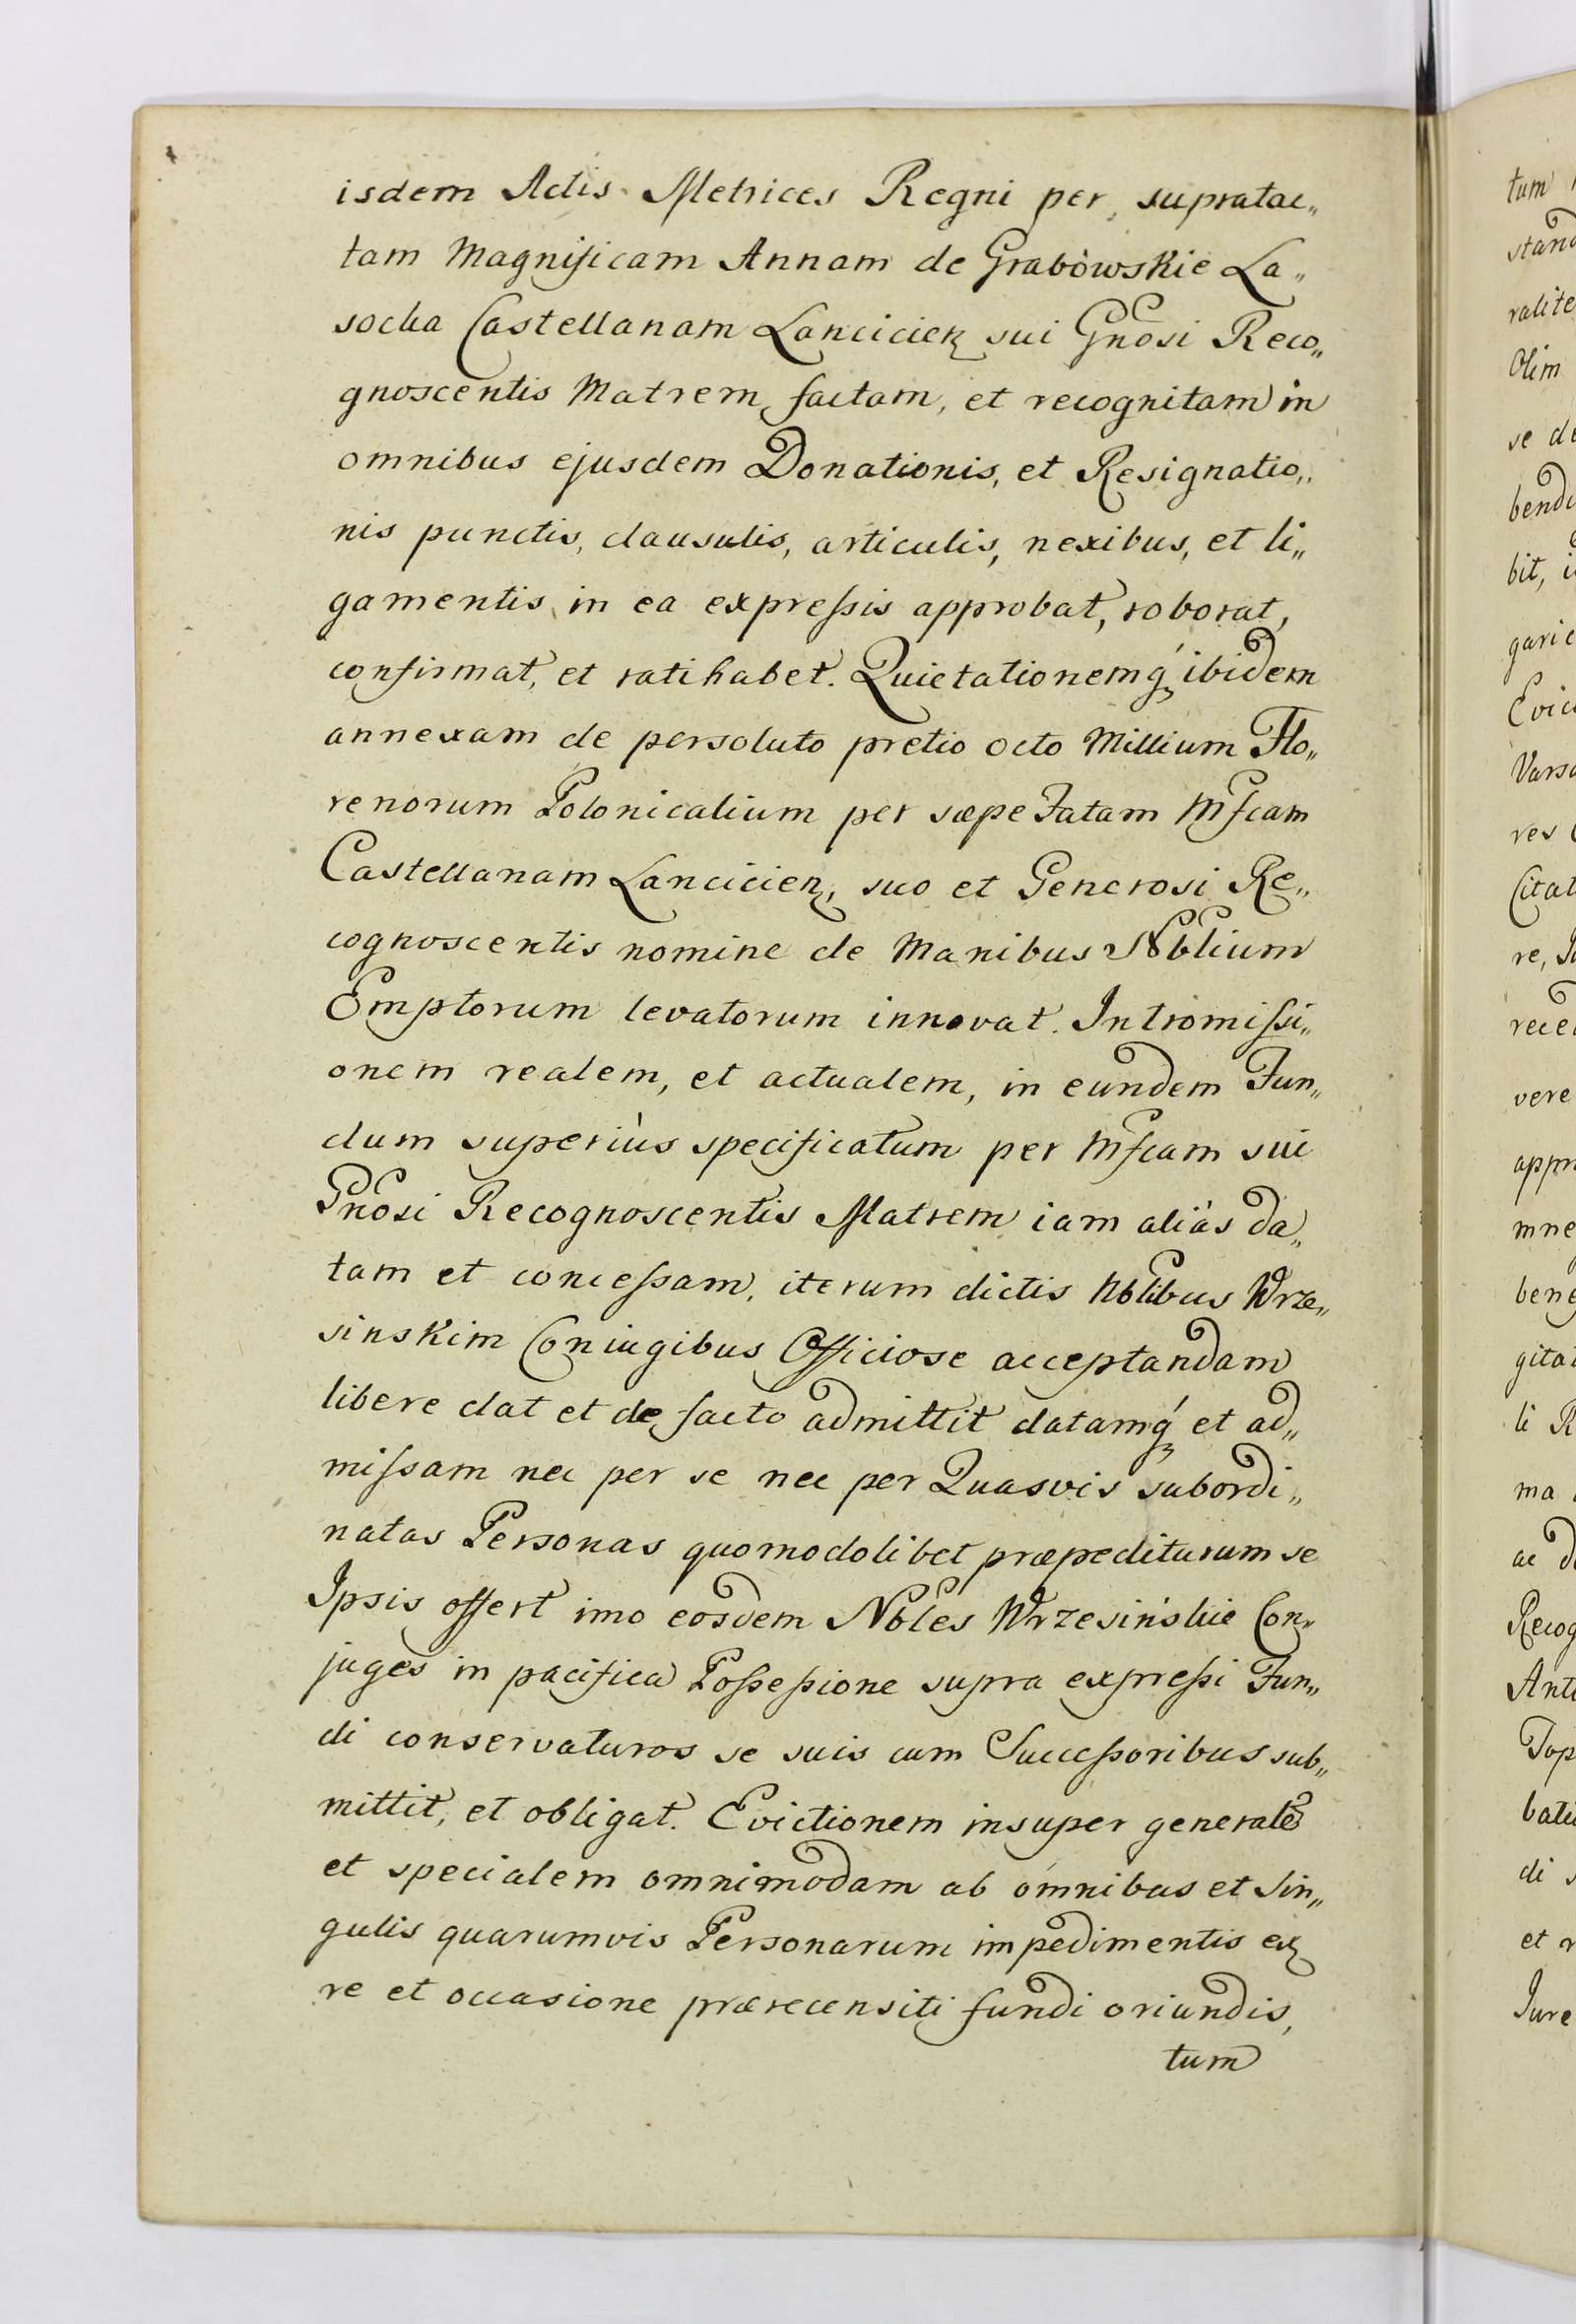 isdem Actis Metrices Regni per supratac„
tam Magnificam Annam de Grabowskie La„
socka Castellanam Lancicien sui Gnosi Reco„
gnoscentis Matrem factam, et recognitam in
omnibus ejusdem Donationis, et Resignatio„
nis punctis, clausulis, articulis, nexibus, et li„
gamentis in ea expreſsis approbat, roborat,
confirmat, et ratihabet. Quietationemq́ ibidem
annexam de persoluto pretio octo Millium Flo„
renorum Polonicalium per sæpe Fatam Mfcam
Castellanam Lancicien, suo et Generosi Re„
cognoscentis nomine de Manibus Nblium
Emptorum levatorum innovat. Intromiſsi„
onem realem, et actualem, in eundem Fun„
dum superiùs specificatum per Mfcam sui
Gnosi Recognoscentis Matrem iam aliàs da„
tam et conceſsam, iterum dictis Nblibus Wrze„
sinskim Coniugibus Officiose acceptandam
libere dat et de facto admittit datamq́ et ad„
miſsam nec per se nec per Quasvis subordi„
natas Personas quomodolibet præpediturum se
Ipsis offert imo eosdem Nbles Wrzesińskie Con„
juges in pacifica Poſseſsione supra expreſsi Fun„
di conservaturos se suis cum Succeſsoribus sub„
mittit, et obligat. Evictionem insuper generale
et specialem omnimodam ab omnibus et Sin„
gulis quarumvis Personarum impedimentis ex
re et occasione prærecensiti fundi oriundis,
tum
tum
stand
ralite
Olim
se de
bend
bit, i
gari
Evic
Vars
res
Citat
re,
rece
vere
appr
mne
bene
gita
li R
ma
ac d
Recog
Ant
Top
bati
di
et
Jure